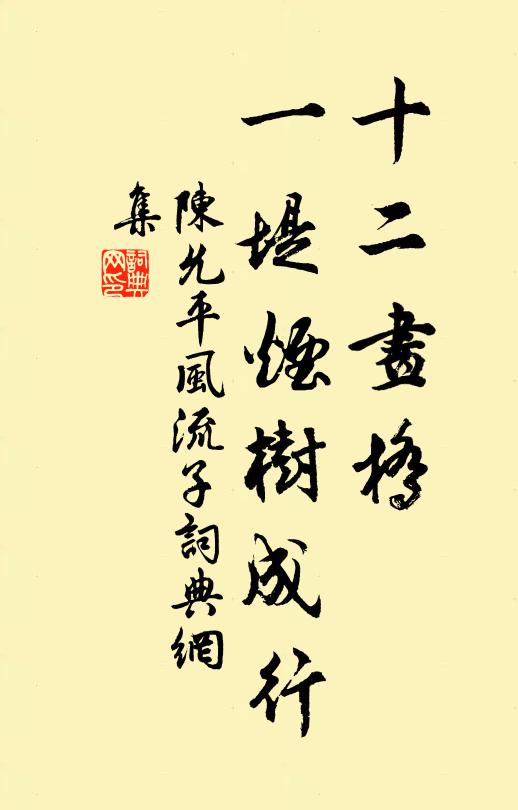 十二畫橋
一堤煙樹成行
陳允平風流子詞典網
集
詞典網印